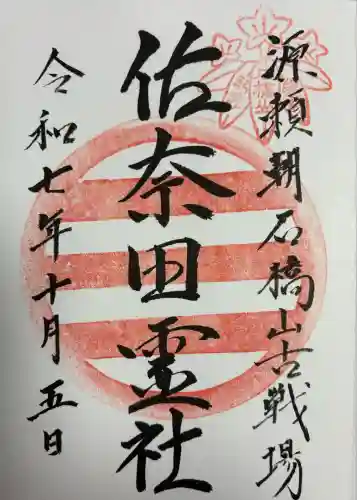 源頼朝石橋山古戦場
佐奈田霊社
令和七年十月五日